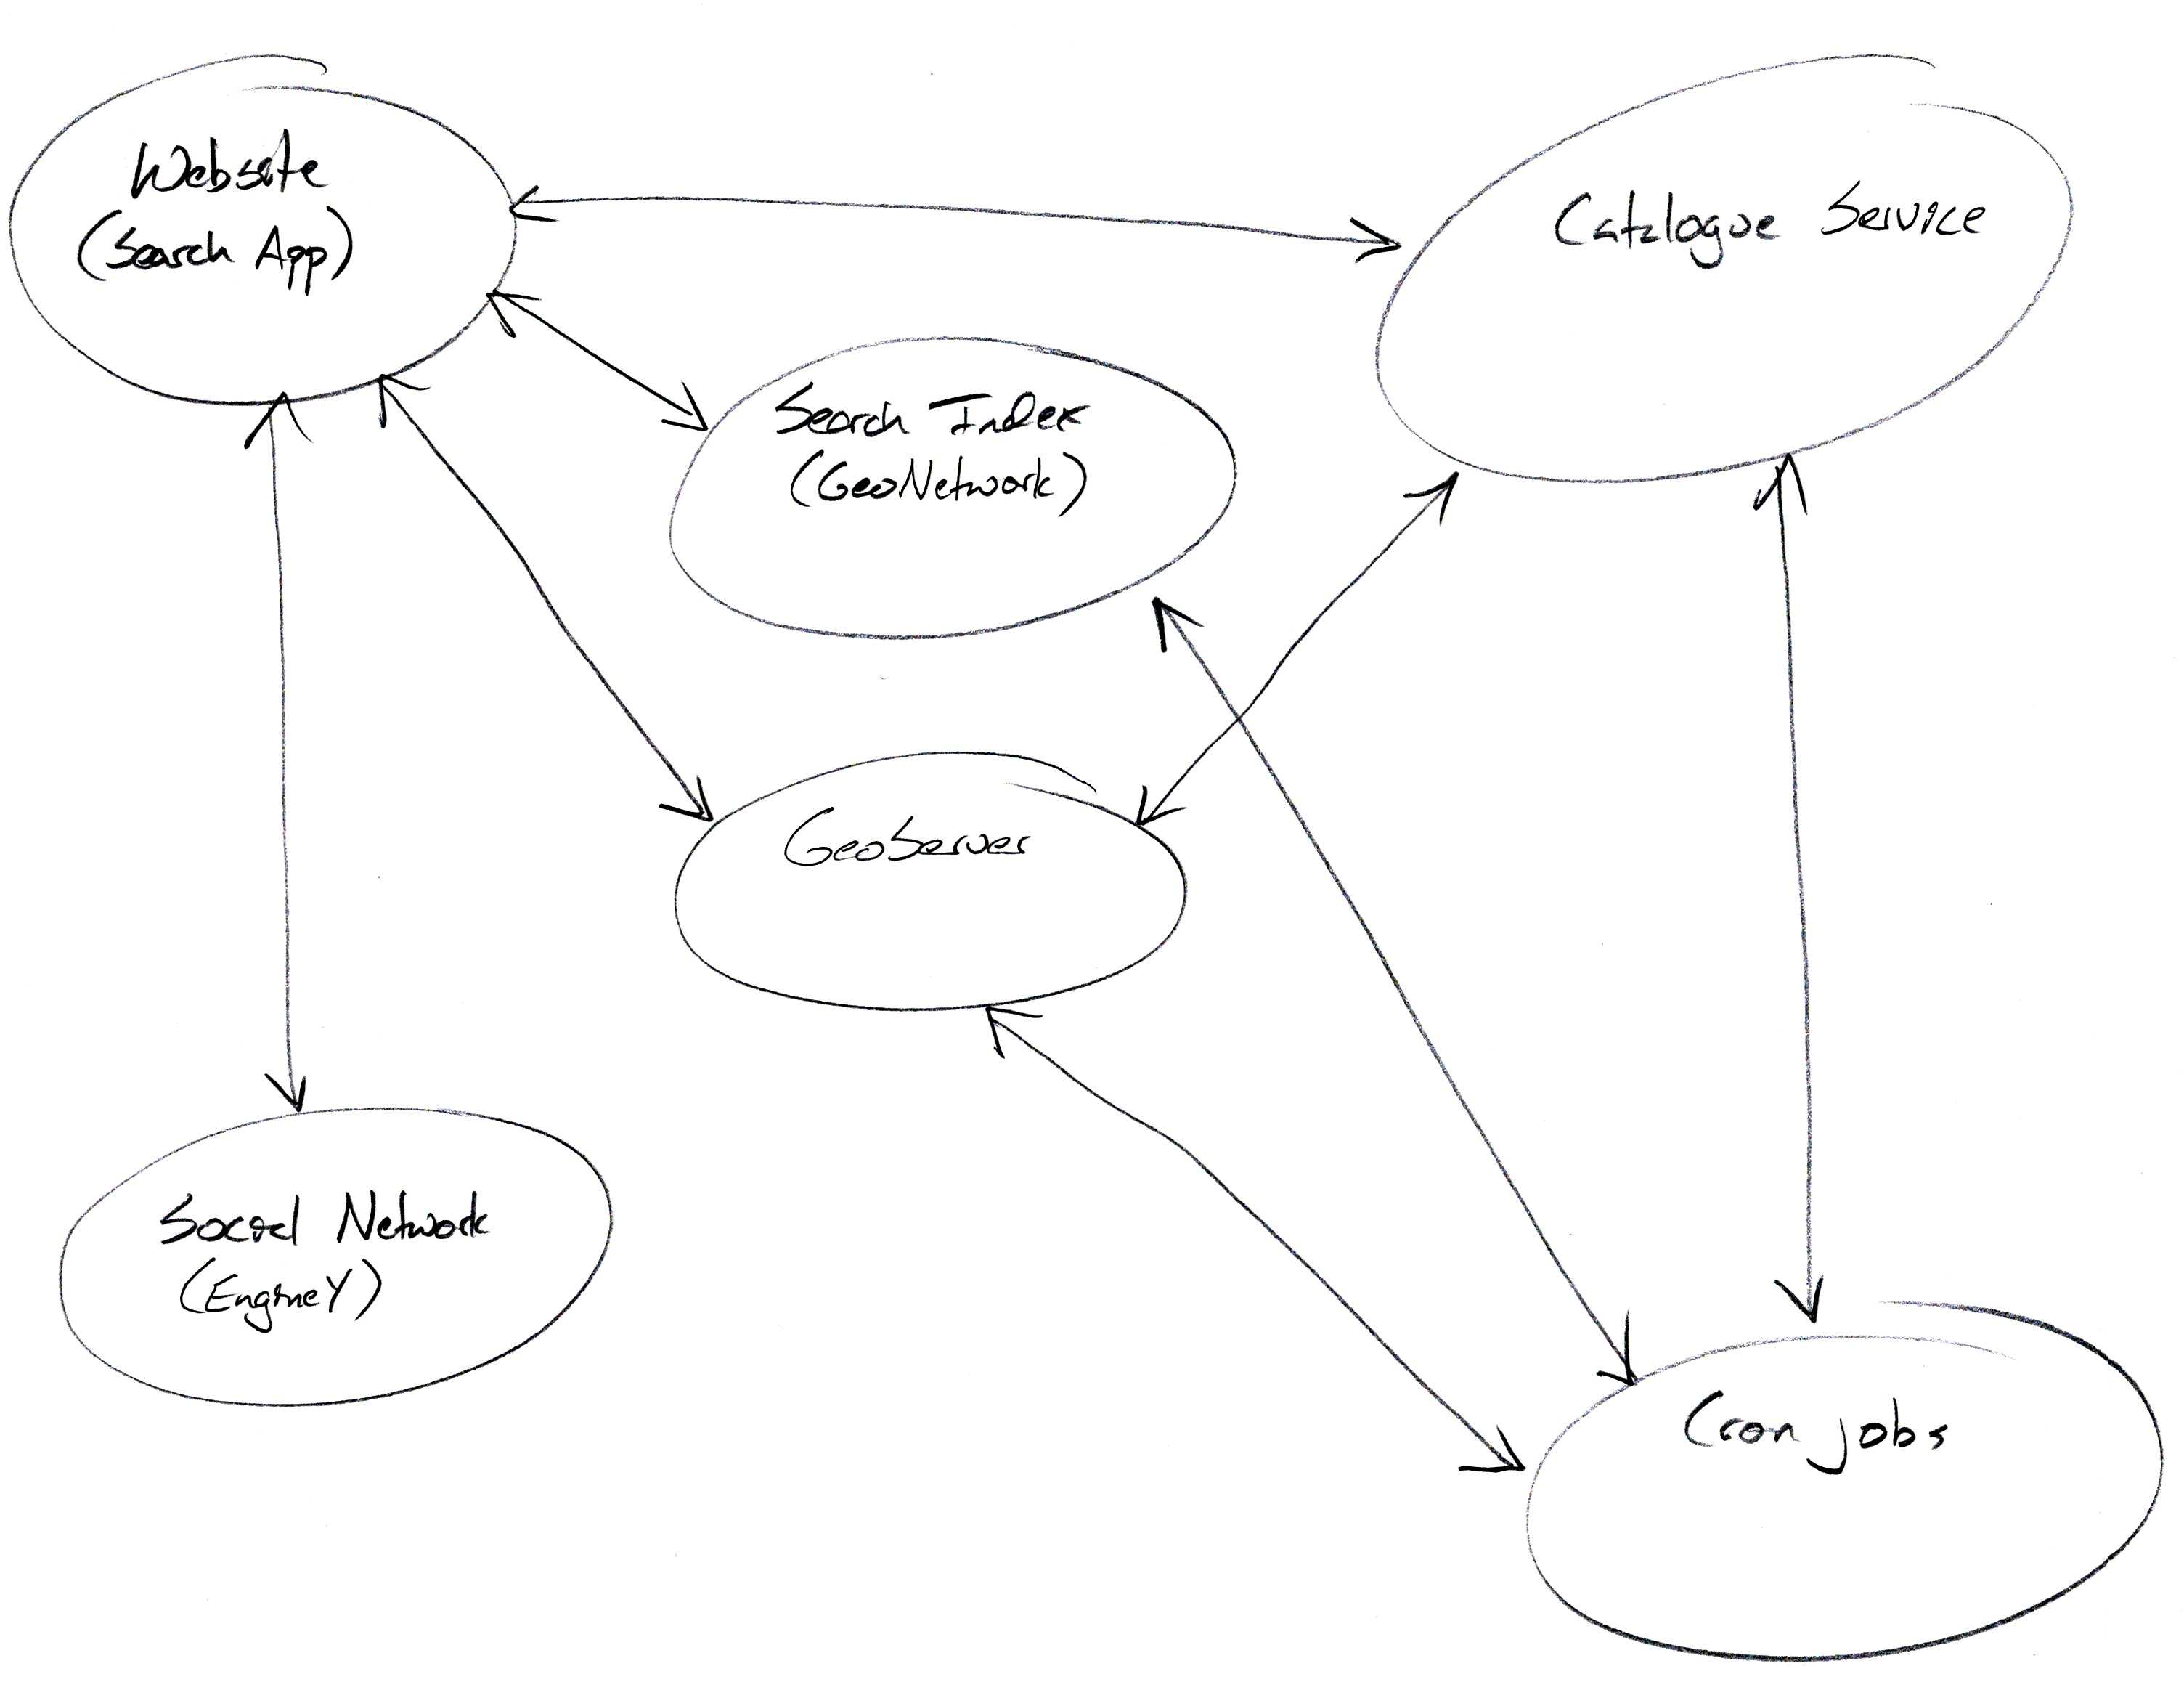 Website
(Search App)
Catalogue Service
Search Index
(GeoNetwork)
GeoServer
Social Network
(EngineY)
Cron jobs